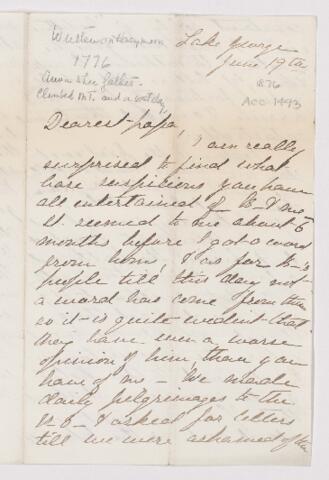 Written on Honeymoon
1776
Anna & her father
Climbed MT. and a wet day
Lake George
June 19th
876
ACC 1493
Dearest papa,
I am really
surprised to find what
base suspicions you have
all entertained of B- & me
It seemed to me about 6
months before I got a word
from home, & as for B-'s
people till this day not
a word has come from them
so it is quite evident that
they have even a worse
opinion of him, than you
have of me - We made
daily pilgrimages to the
P-O- & asked for letters
till we were ashamed of the